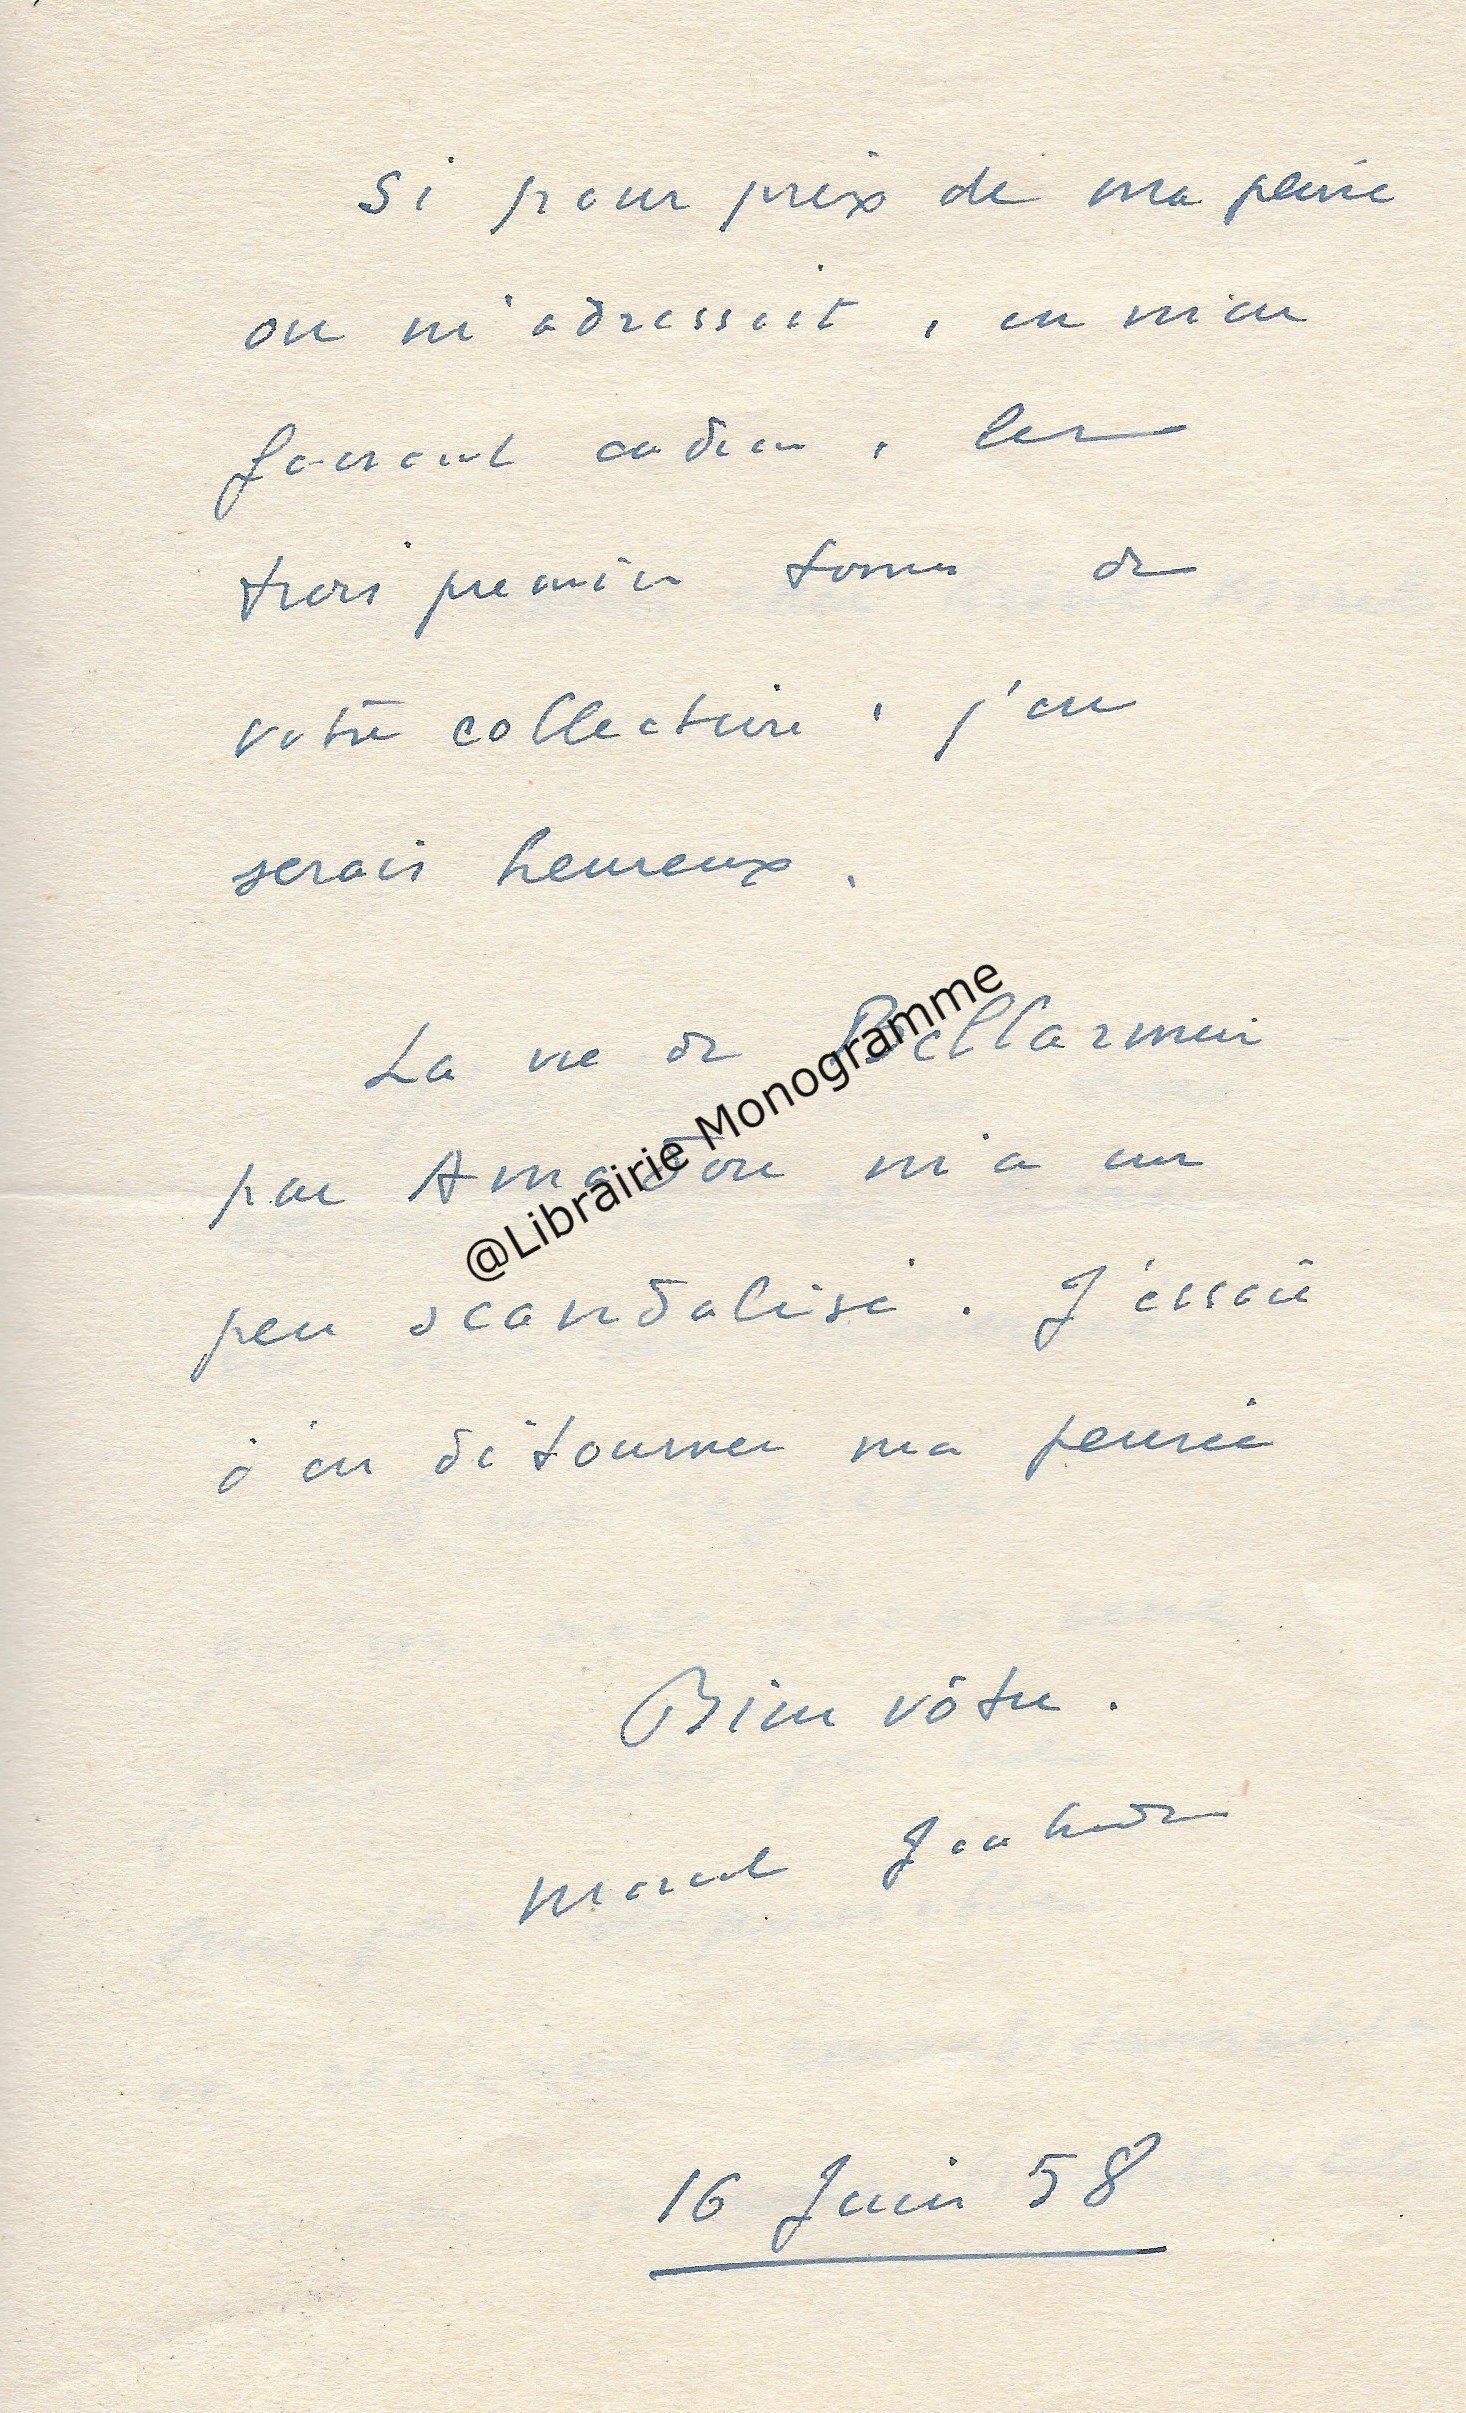 Si pour prix de ma peine
on m'adressait, en m'en
faisant cadeau, les
trois premiers tomes de
votre collection, j'en
serais heureux.
La vie de Bellarmin
par Amadou m'a un
peu scandalisé. J'essaie
d'en détourner ma pensée
Bien vôtre.
Marcel Jouhandeau
16 Juin 58
@Librairie Monogramme